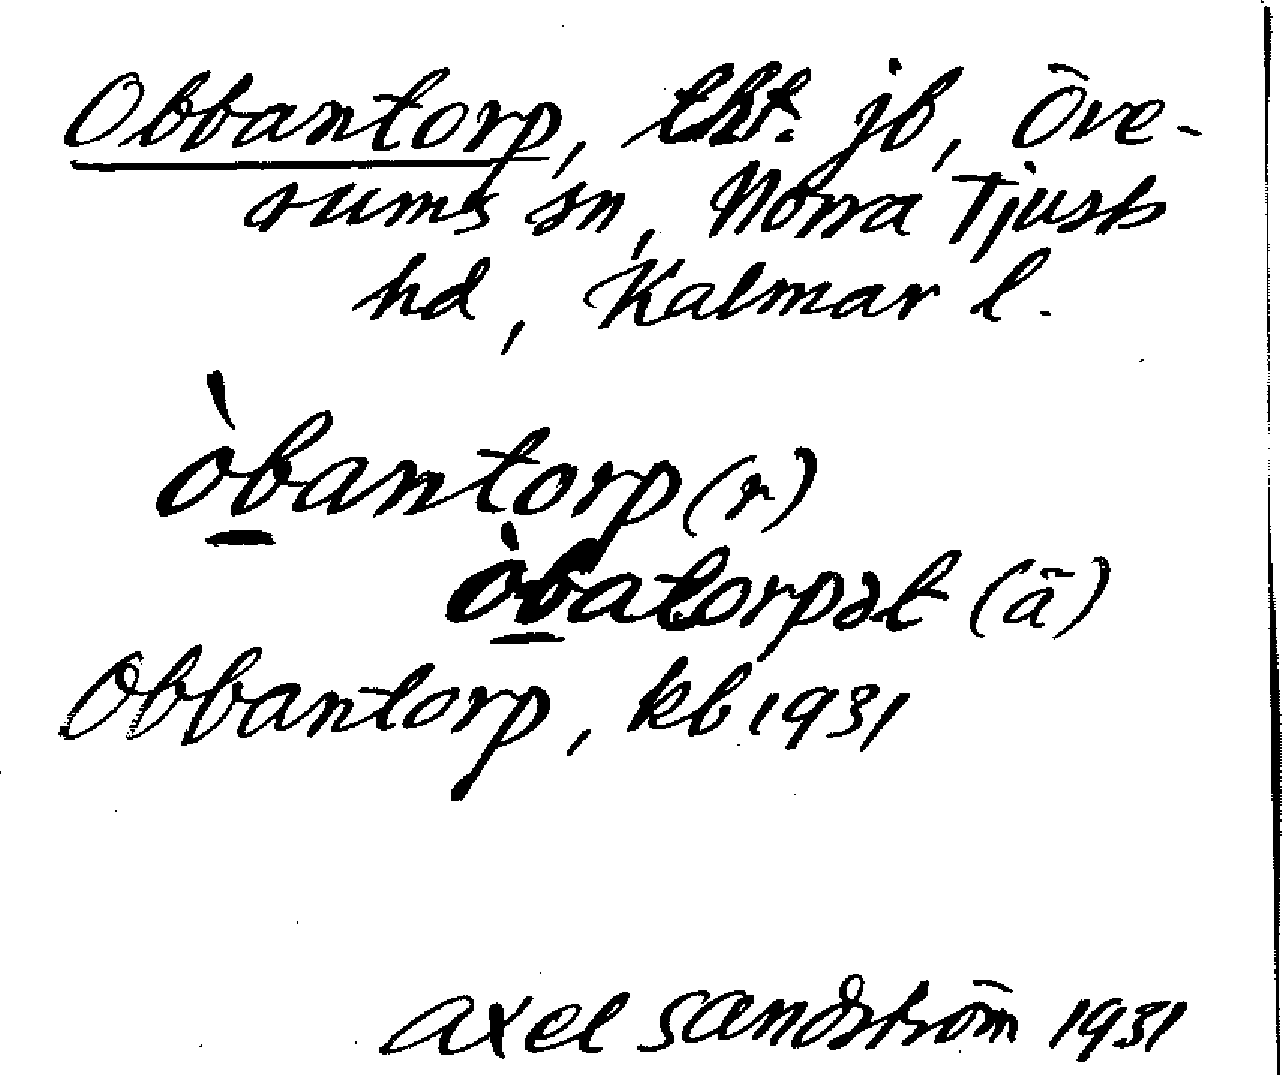 Obbantorp, tht. jb, Öve-
rums sn, Norra Tjusts
hd, Kalmar l.
òb̲antorp (r)
òb̲atorpət (ä)
Obbantorp, kb 1931
Axel Sandström 1931